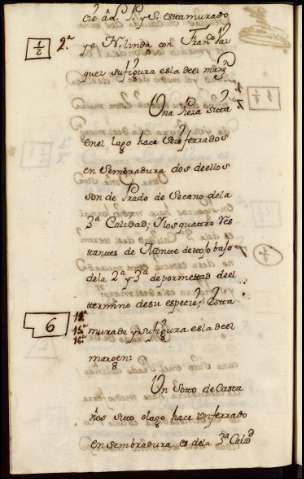 cio à D.ⁿ P. y S. esta murado
1/2 2.ª y se Yslinda con Fran.co Váz
quez su figura es la del marg.ⁿ
Una Pieza sita
en el Lago hace seis ferrados
en Sembradura dos de ellos
son de Prado de Secano de la
3ª Calidad; Y los quatro res
tantes de Monte de tojo bajo
de la 2ª y 3ª de por metad del
termino de su especie; Esta
6 murada y su figura es la del
margen;
Un Soto de Casta
ños sito olago hace un ferrado
en sembradura es de la 3ª Calid.d